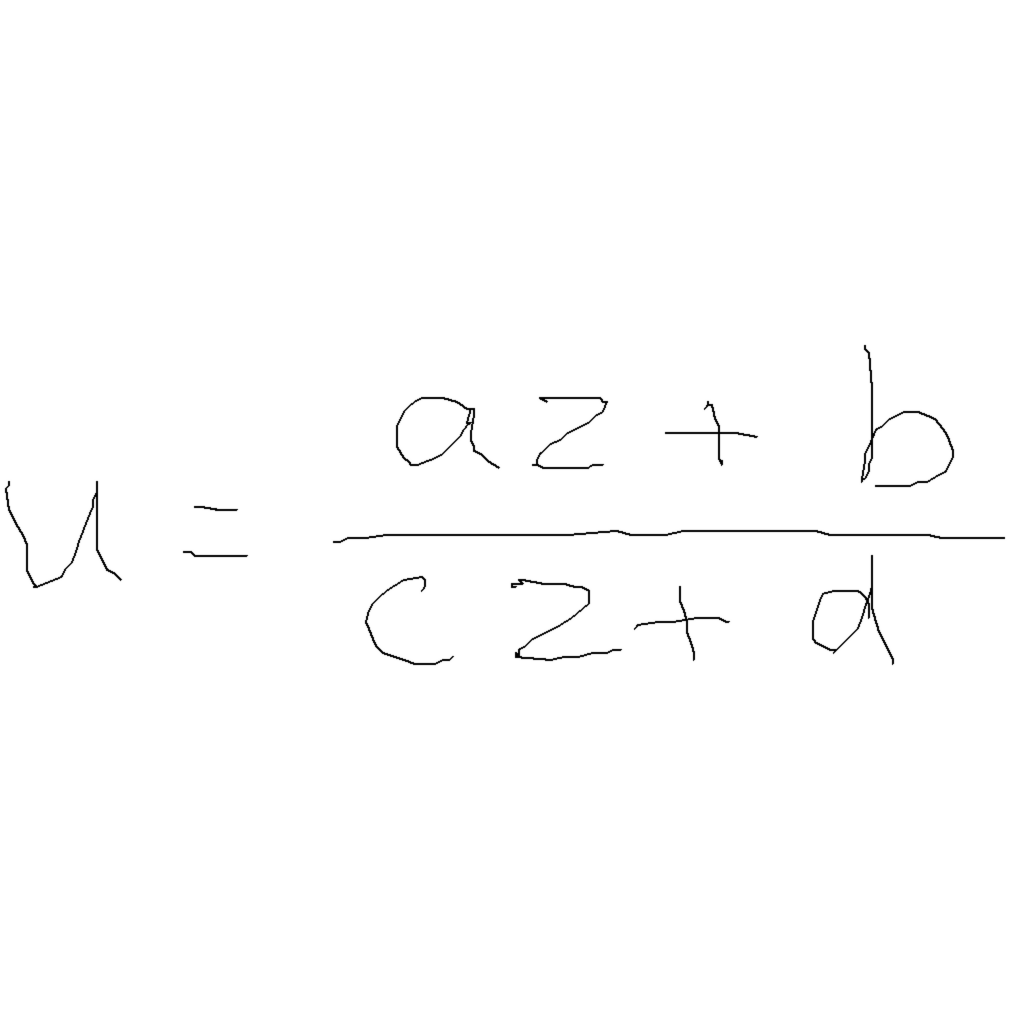 u = \frac{az + b}{cz + d}